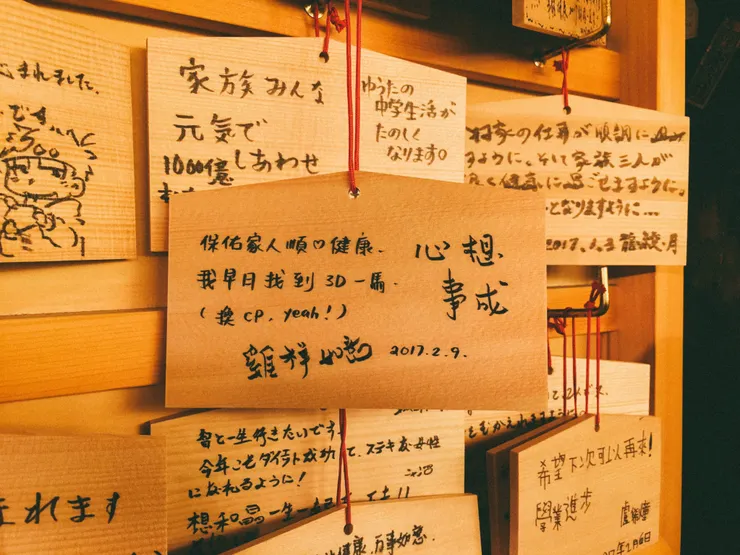 まれました。
です
家族みんな
元気で
1000億しあわせ
ゆうたの
中学生活が
たのしく
なります。
の仕事が順調に
すように、そして家族三人が
健康に過ごせますように。
となりますように…
2017.1.3
保佑家人順♡健康.
我早日找到3D一馬.
(換CP, yeah!)
心想
事成
雞祥如意 2017.2.9.
と一生行きたいです。
今年こそダイエット成功して、ステキな女性
になれるように!
想和
一生一
健康、万事如意.
れます
希望下次可以再來!
學業進步